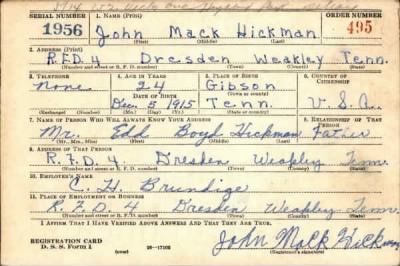 SERIAL NUMBER 1. NAME (Print) ORDER NUMBER
1956 John Mack Hickman 495
(First) (Middle) (Last)
2. ADDRESS (Print)
R.F.D. 4 Dresden Weakley Tenn.
(Number and street or R. F. D. number) (Town) (County) (State)
3. TELEPHONE 4. AGE IN YEARS 5. PLACE OF BIRTH 6. COUNTRY OF CITIZENSHIP
None 24 Gibson
DATE OF BIRTH (Town or county)
Dec. 5 1915 Tenn. U.S.A.
(Exchange) (Number) (Mo.) (Day) (Yr.) (State or country)
7. NAME OF PERSON WHO WILL ALWAYS KNOW YOUR ADDRESS 8. RELATIONSHIP OF THAT PERSON
Mr. Edd Boyd Hickman Father
(Mr., Mrs., Miss) (First) (Middle) (Last)
9. ADDRESS OF THAT PERSON
R.F.D. 4. Dresden Weakley Tenn.
(Number and street or R. F. D. number) (Town) (County) (State)
10. EMPLOYER'S NAME
C. H. Brundige
11. PLACE OF EMPLOYMENT OR BUSINESS
R.F.D. 4 Dresden Weakley Tenn.
(Number and street or R. F. D. number) (Town) (County) (State)
I AFFIRM THAT I HAVE VERIFIED ABOVE ANSWERS AND THAT THEY ARE TRUE.
REGISTRATION CARD
D. S. S. Form 1 (over) 16-17105 John Mack Hickman
(Registrant's signature)